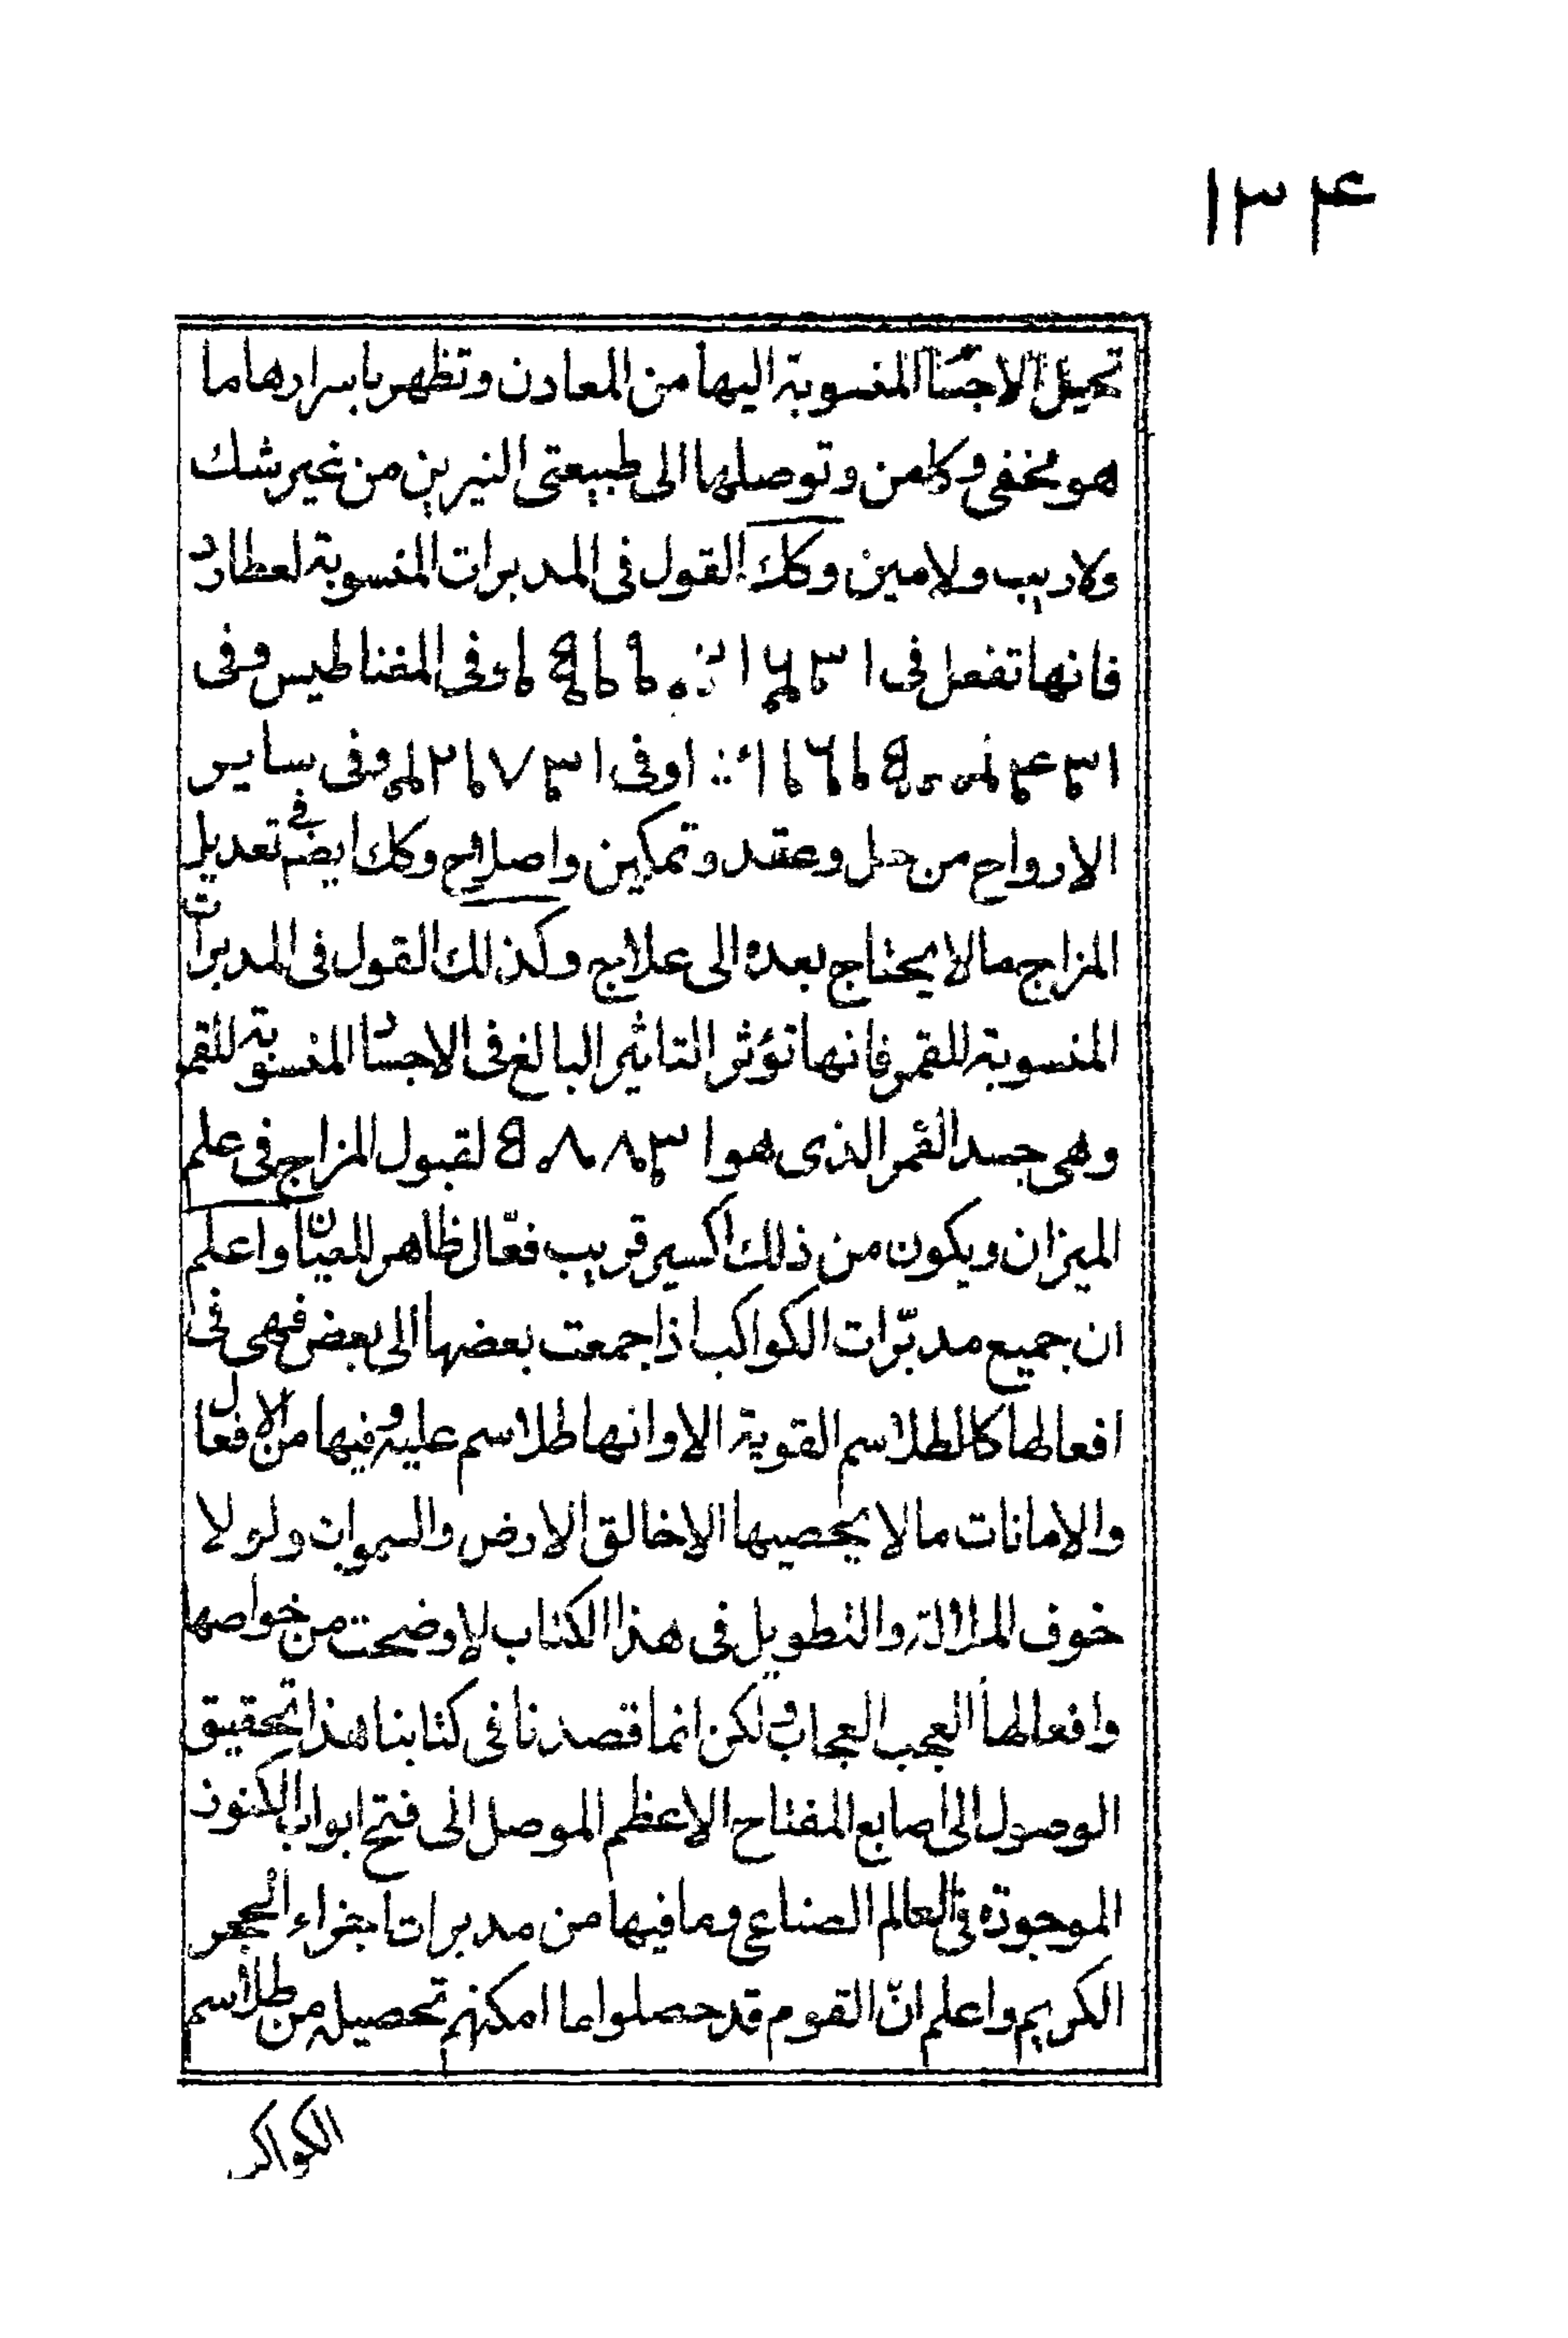 ١٣۴
تحيل الاجساد المنسوبة اليها من المعادن وتظهر باسرارها ما
هو مخفى وكامن وتوصلها الى طبيعتى النيرين من غير شك
ولا ريب ولا مين وكك القول فى المدبرات المنسوبة لعطارد
فانها تفعل فى وفى المغناطيس وفى
وفى وفى ساير
الارواح من حل وعقد وتمكين واصلاح وكك ايضم فى تعديل
المزاج مالا يحتاج بعده الى علاج وكذلك القول فى المدبرات
المنسوبة للقمر فانها تؤثر التاثير البالغ فى الاجساد المنسوبة للقمر
وهى جسد القمر الذى هو لقبول المزاج فى علم
الميزان ويكون من ذلك اكسير قريب فعّال ظاهر للعيان واعلم
ان جميع مدبّرات الكواكب اذا جمعت بعضها الى بعض فهى فى
افعالها كالطلاسم القوية الا وانها طلاسم عليه وفيها من الافعال
والامانات مالا يحصيها الا خالق الارض والسموات ولولا
خوف الملالة والتطويل فى هذا الكتاب لاوضحت من خواصها
وافعالها العجب العجاب ولكن انما قصدنا فى كتابنا هذا تحقيق
الوصول الى اصابع المفتاح الاعظم الموصل الى فتح ابواب الكنوز
الموجودة فى العالم الصناعى وما فيها من مدبرات اجزاء الحجر
الكريم واعلم انّ القوم قد حصلوا ما امكنهم تحصيله من طلاسم
الكواكب